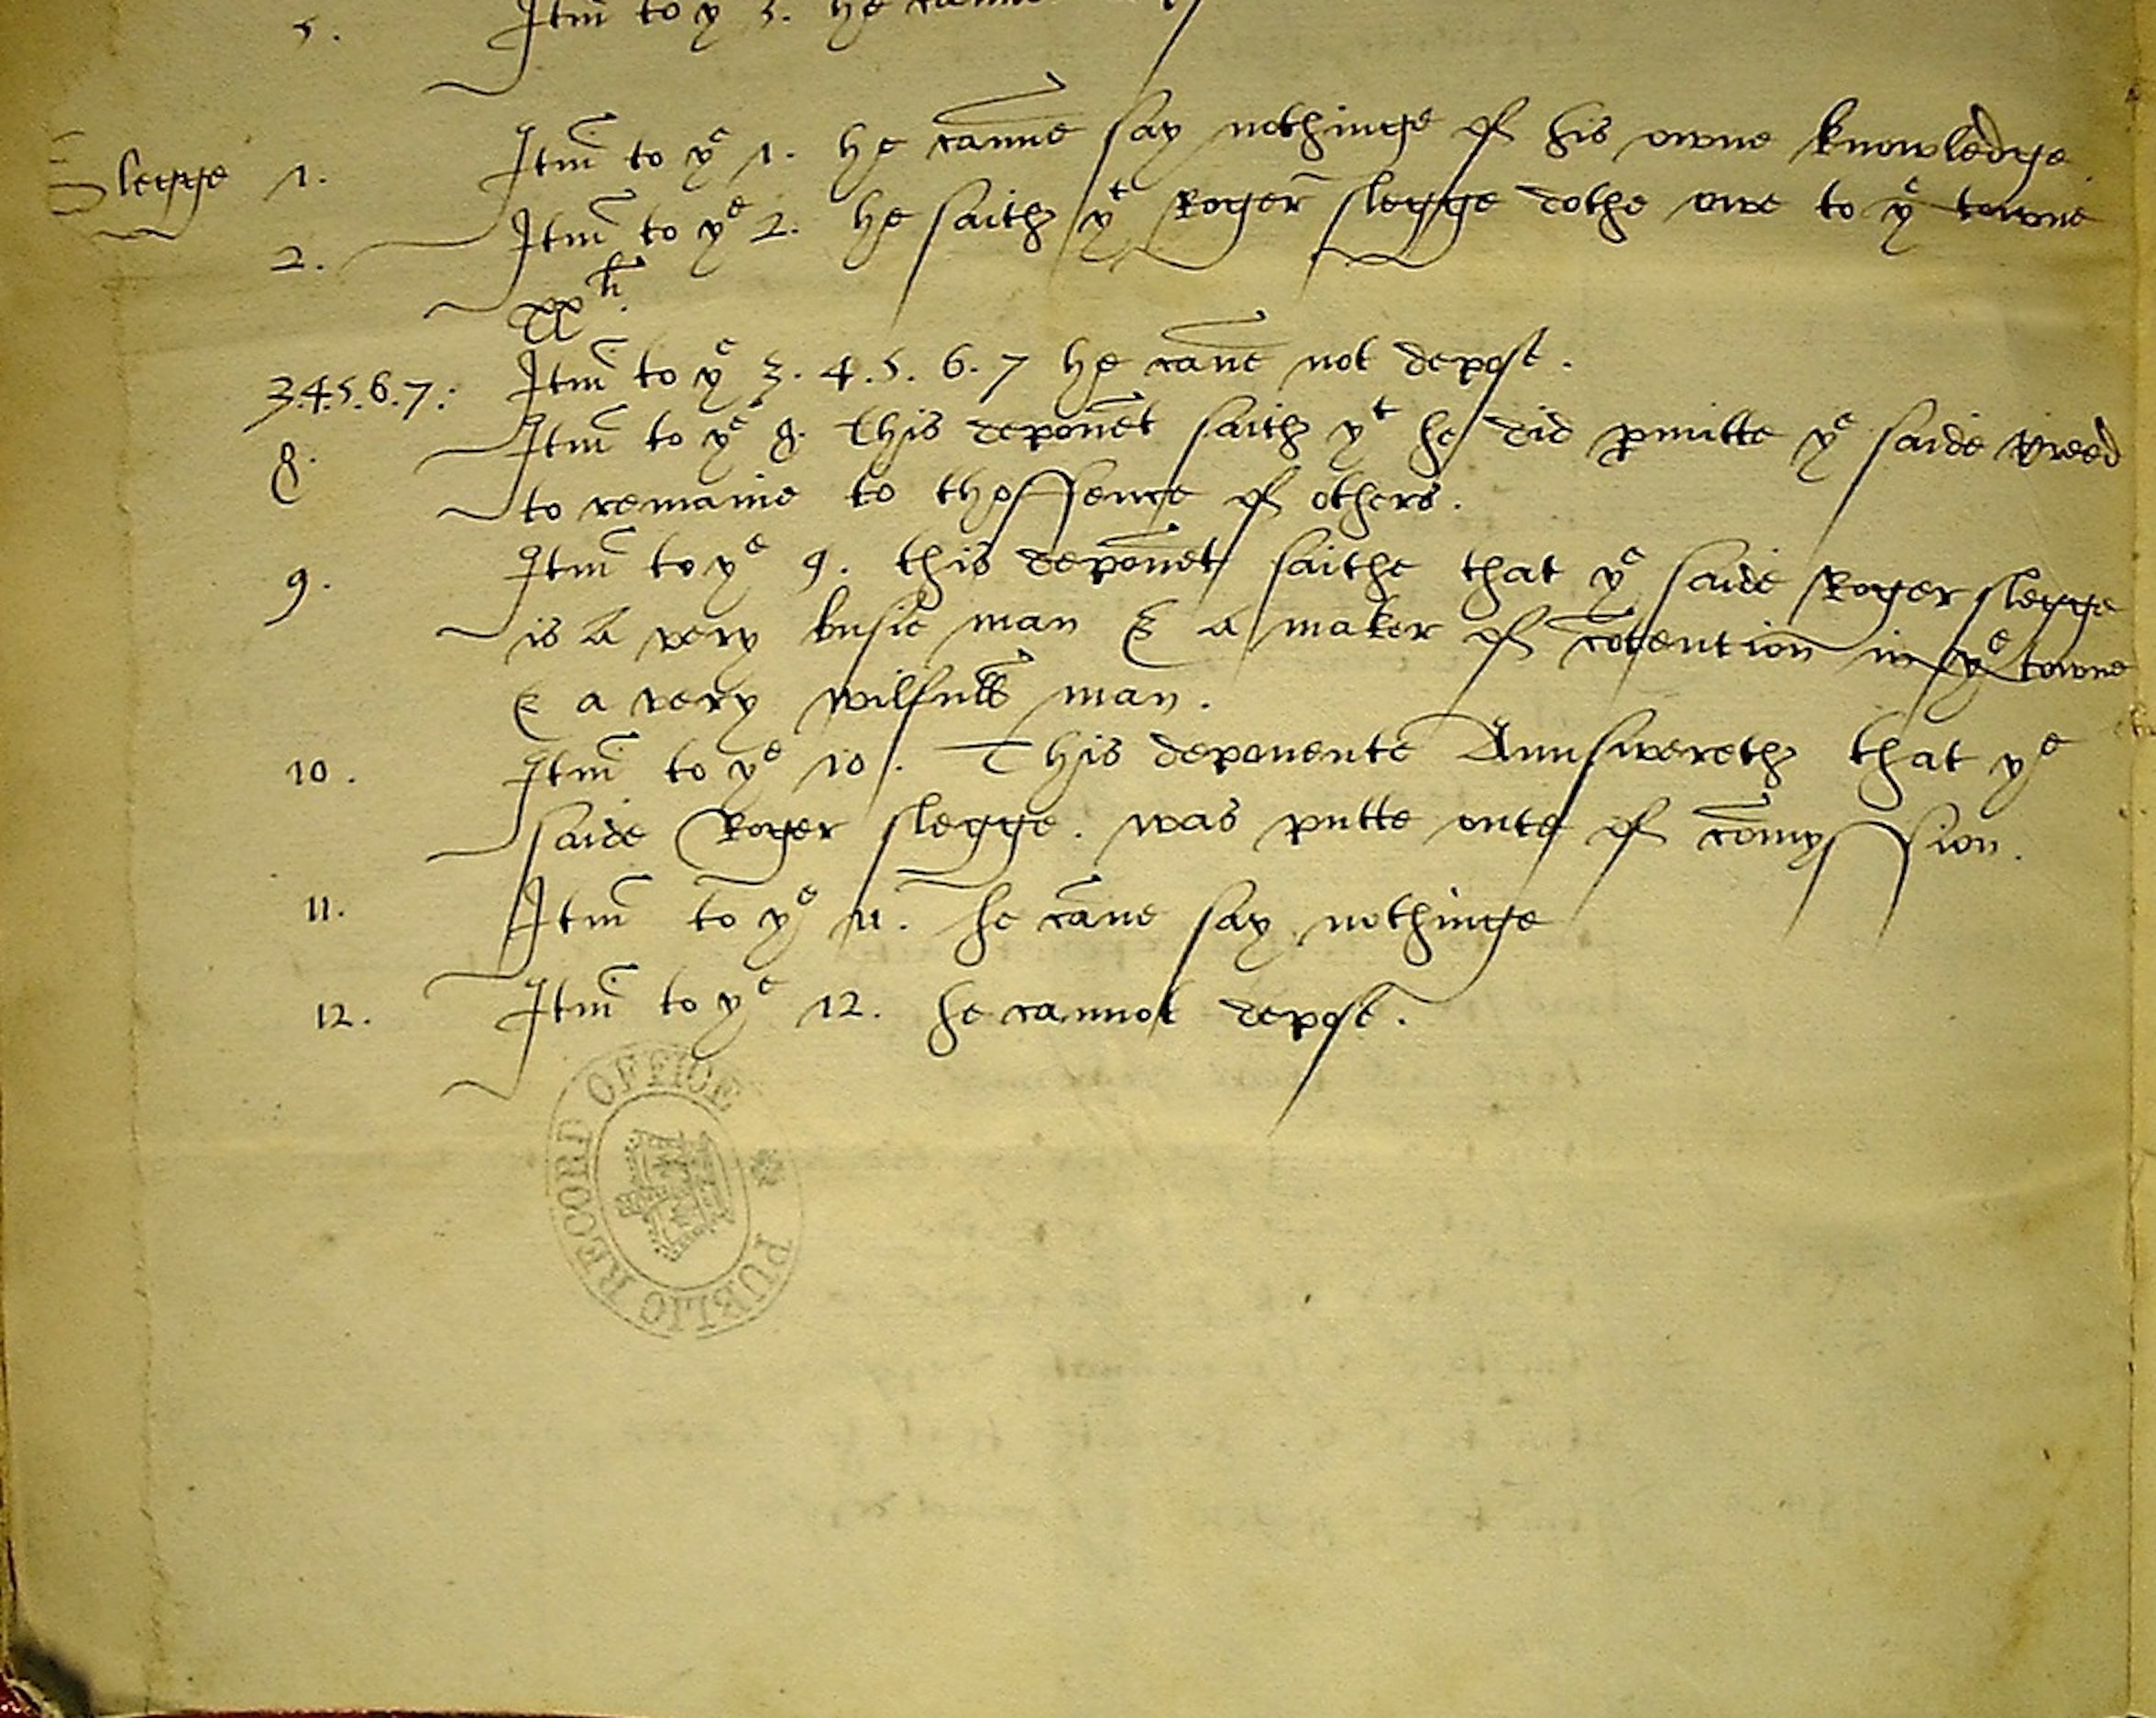 5. Itm̃ to yͤ 5. he canne
Slegge 1. Itm̃ to yͤ 1. he canne say nothinge of his owne knowledge
2. Itm̃ to yͤ 2. he saith yͭ Roger slegge dothe owe to yͤ towne
xxˡⁱ.
3.4.5.6.7. Itm̃ to yͤ 3. 4. 5. 6. 7 he cañe not depose.
8. Itm̃ to yͤ 8. This deponẽt saith yͭ he did ꝑmitte yͤ saide
to remaine to thoffence of others.
9. Itm̃ to yͤ 9. this deponẽt saithe that yͤ saide Roger slegge
is a very busie man & a maker of cõtention in yͤ towne
& a very wilfull man.
10. Itm̃ to yͤ 10. This deponente Aunswereth that yͤ
saide Roger slegge. was putte oute of com̃yssion.
11. Itm̃ to yͤ 11. he cãne say nothinge
12. Itm̃ to yͤ 12. he cannot depose.
PUBLIC RECORD OFFICE